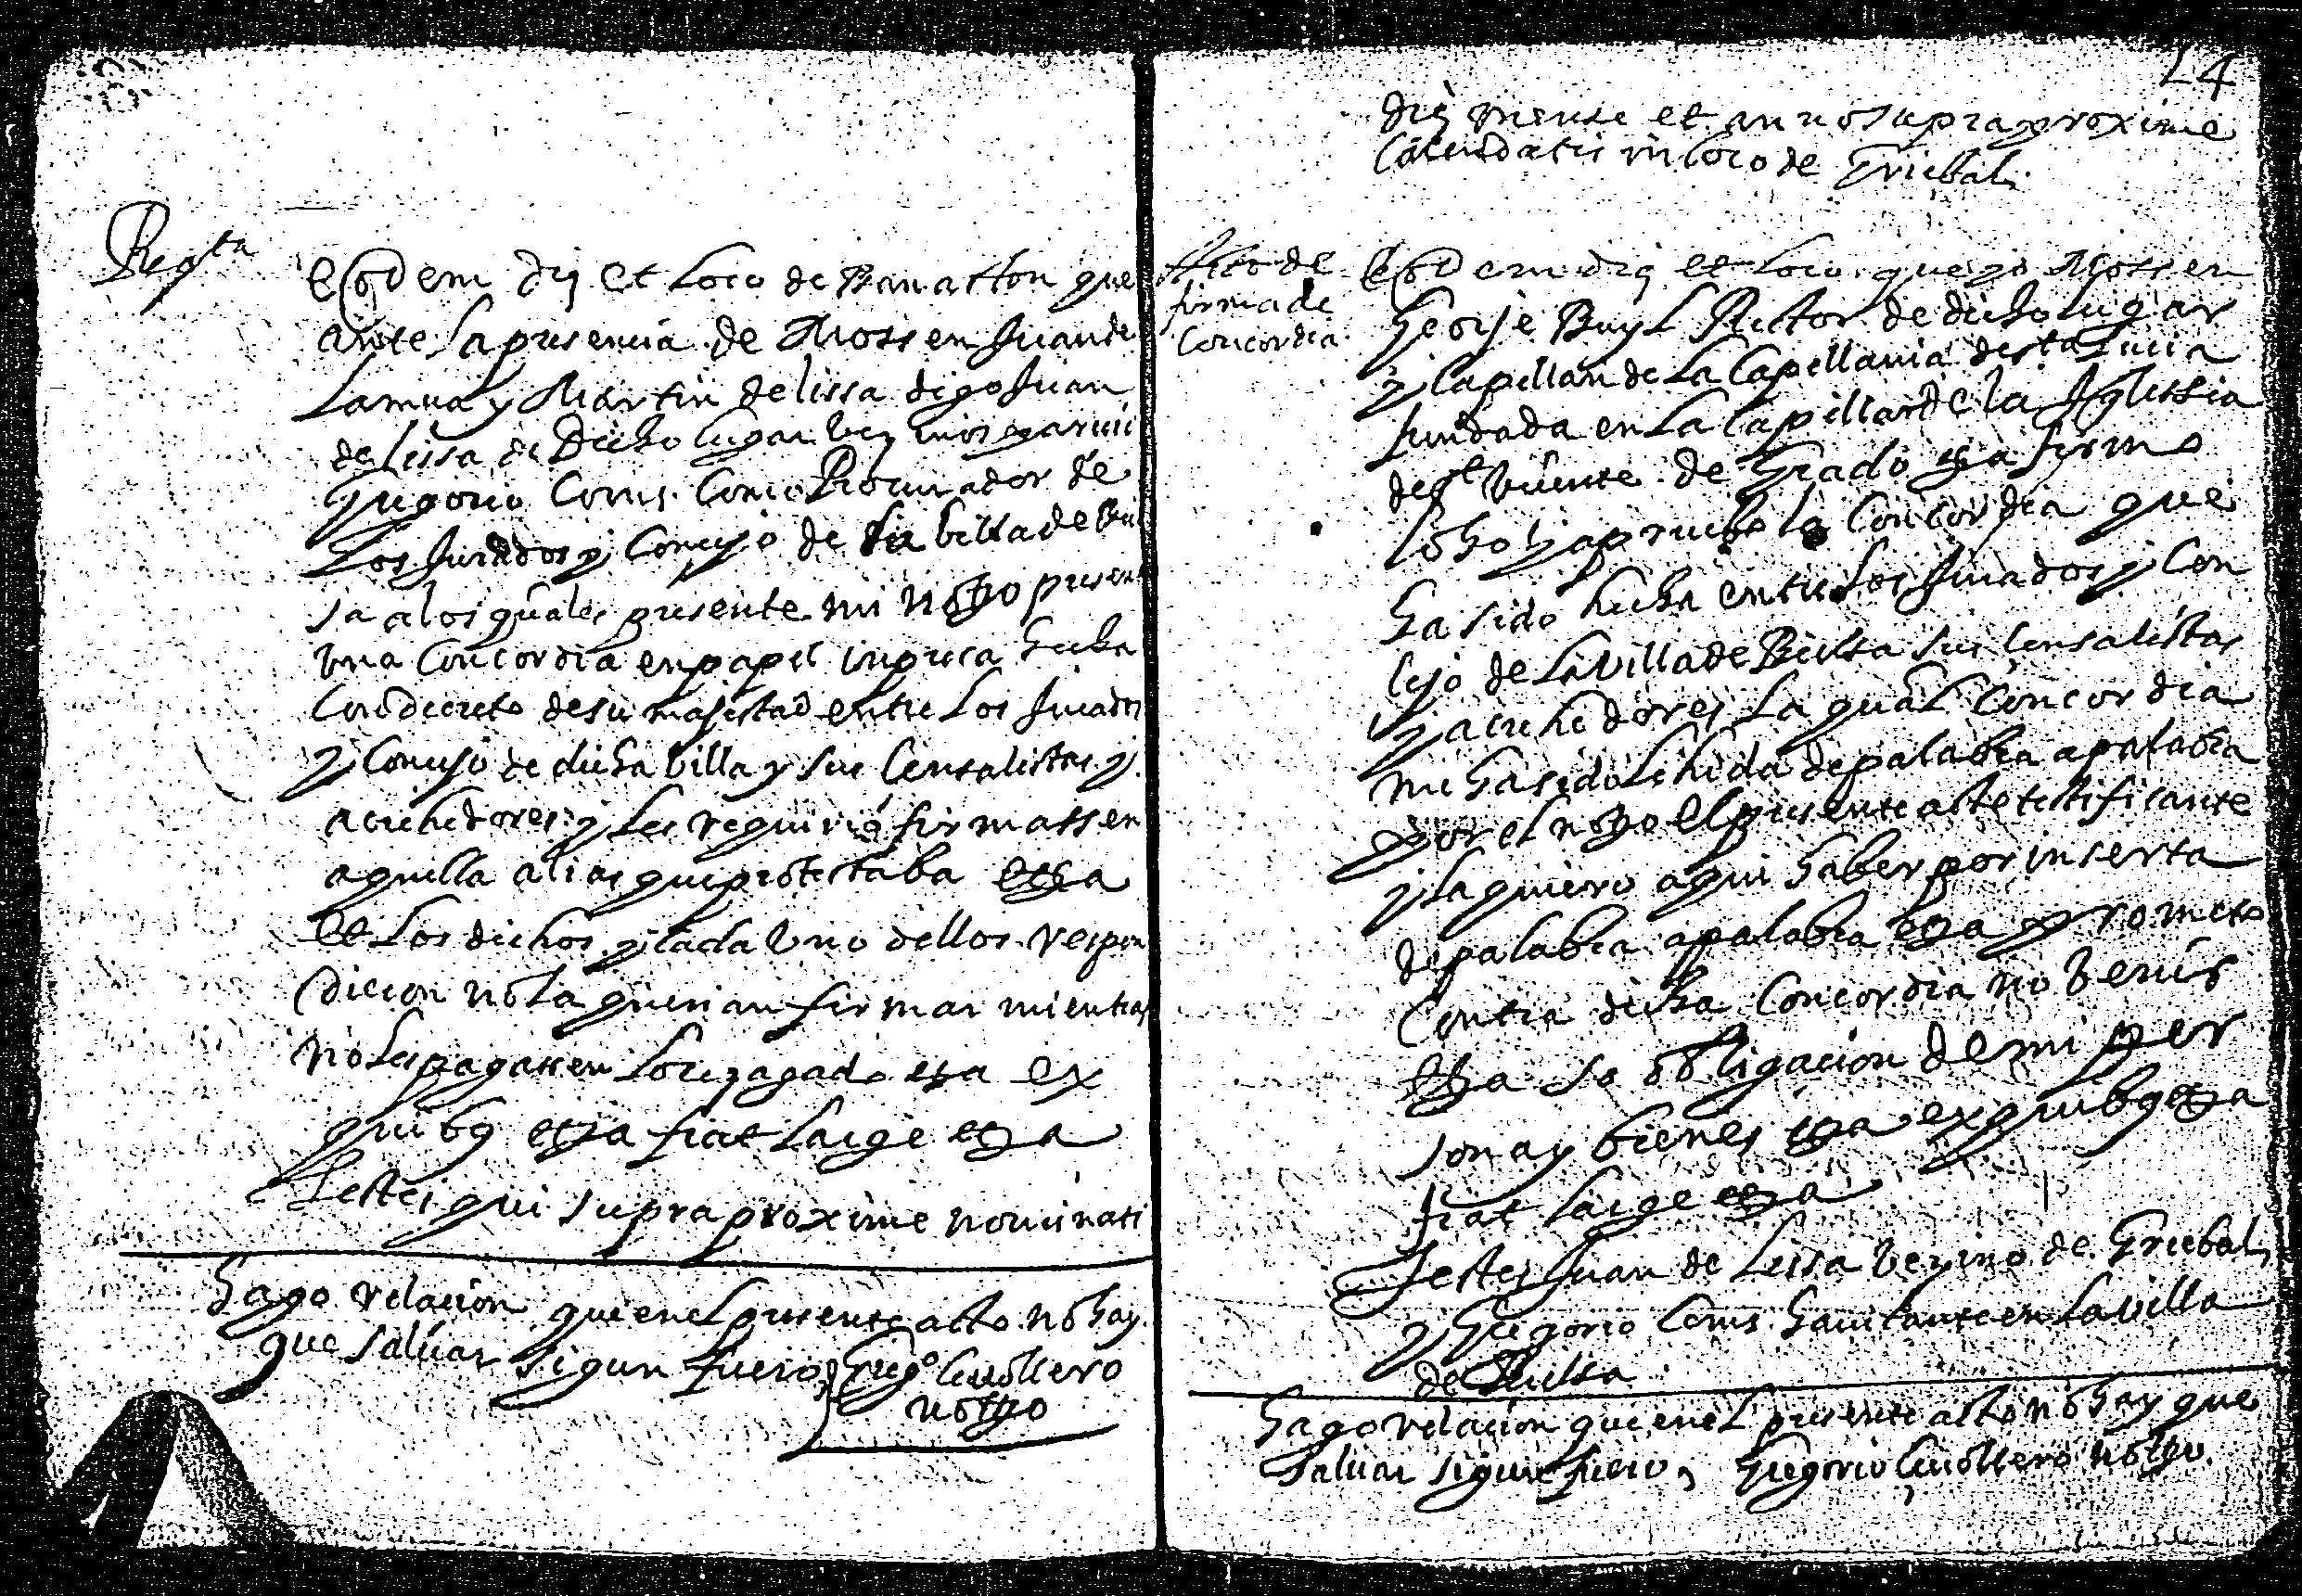 Reqta
eodem die et loco de Banaston que
ante la presencia de Mossen Juan de
Lamua y Martin de lissa digo Juan
de lissa de dicho lugar
Gregorio Coms como Procurador de
los Jurados y Concejo de la billa de Biel
sa a los quales presente mi notº present
una Concordia en papel inpresa hecha
con decreto de su majestad entre los Jurados
y Concejo de dicha billa y sus Censalistas y
acrehedores y les requirió firmassen
aquella alias que protestaba etza
et los dichos y cada uno dellos respon
dieron no la querian firmar mientras
no les pagassen lo rezagado eza ex
quibg etza fiat large etza
Testes qui supra proxime nominati
Hago relacion que en el presente acto no hay
que saluar sigun fuero Gregº
notº
24
die mense et anno supra proxime
calendatis in loco de Griebal
Acto de
firma de
Concordia
eodem die et loco que yo Mossen
George Buyl Retor de dicho lugar
y Capellan de la Capellania de sta Lucia
fundada en la Capilla de la Iglessia
de st Vicente de Grado eza firmo
loho y apruebo la Concordia que
ha sido hecha entre los Jurados y Con
cejo de la Villa de Bielsa sus Censalistas
y acrehedores la qual Concordia
me ha sido lehida de palabra a palabra
por el notº el presente acte testificante
y la quiero aqui haber por inserta
de palabra a palabra eza y prometo
contra dicha Concordia no benir
etza so obligacion de mi per
sona y bienes eza ex quibg etza
fiat large etza
Testes Juan de Lissa vezino de Griebal
y Gregorio Coms havitante en la villa
de Bielsa
Hago relacion que en el presente acto no hay que
saluar sigun fuero, Gregorio notº.